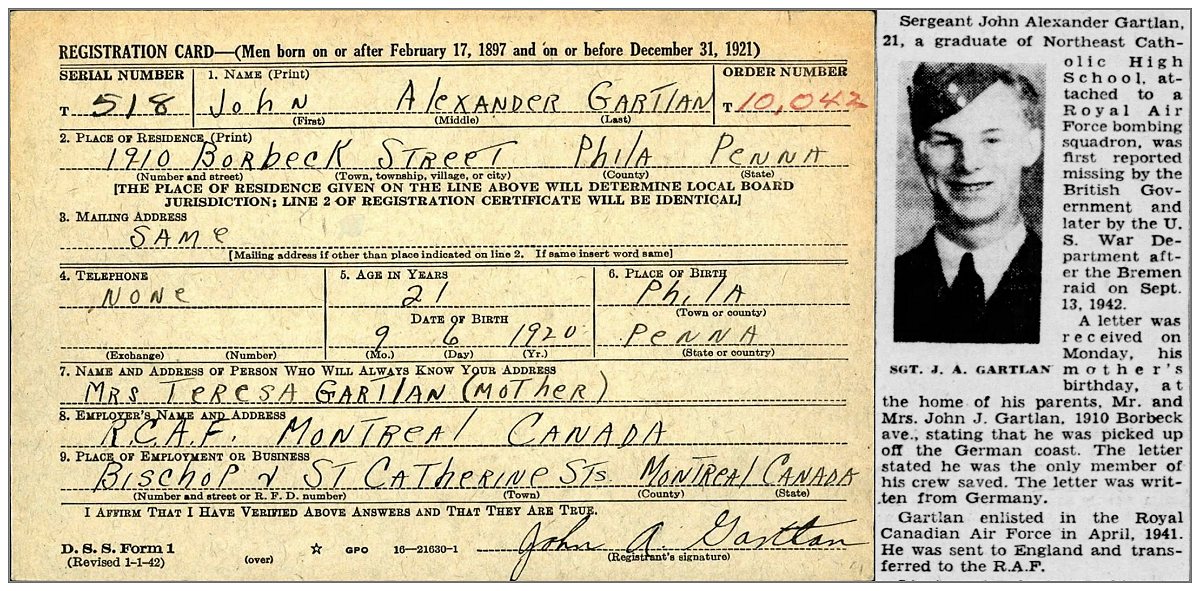 REGISTRATION CARD—(Men born on or after February 17, 1897 and on or before December 31, 1921)
SERIAL NUMBER
T 518
1. NAME (Print)
John Alexander Gartlan
(First) (Middle) (Last)
ORDER NUMBER
T 10,042
2. PLACE OF RESIDENCE (Print)
1910 Borbeck Street Phila Penna
(Number and street) (Town, township, village, or city) (County) (State)
[THE PLACE OF RESIDENCE GIVEN ON THE LINE ABOVE WILL DETERMINE LOCAL BOARD
JURISDICTION; LINE 2 OF REGISTRATION CERTIFICATE WILL BE IDENTICAL]
3. MAILING ADDRESS
SAMe
[Mailing address if other than place indicated on line 2. If same insert word same]
4. TELEPHONE
None
(Exchange) (Number)
5. AGE IN YEARS
21
DATE OF BIRTH
9 6 1920
(Mo.) (Day) (Yr.)
6. PLACE OF BIRTH
Phila
(Town or county)
Penna
(State or country)
7. NAME AND ADDRESS OF PERSON WHO WILL ALWAYS KNOW YOUR ADDRESS
Mrs Teresa Gartlan (Mother)
8. EMPLOYER'S NAME AND ADDRESS
R.C.A.F. Montreal Canada
9. PLACE OF EMPLOYMENT OR BUSINESS
Bischop & St Catherine Sts. Montreal Canada
(Number and street or R. F. D. number) (Town) (County) (State)
I AFFIRM THAT I HAVE VERIFIED ABOVE ANSWERS AND THAT THEY ARE TRUE.
John A. Gartlan
(Registrant's signature)
D. S. S. Form 1
(Revised 1-1-42)
(over)
☆ GPO 16—21630-1
Sergeant John Alexander Gartlan,
21, a graduate of Northeast Cath-
olic High
School, at-
tached to a
Royal Air
Force bombing
squadron, was
first reported
missing by the
British Gov-
ernment and
later by the U.
S. War De-
partment aft-
er the Bremen
raid on Sept.
13, 1942.
A letter was
received on
Monday, his
mother's
birthday, at
SGT. J. A. GARTLAN
the home of his parents, Mr. and
Mrs. John J. Gartlan, 1910 Borbeck
ave., stating that he was picked up
off the German coast. The letter
stated he was the only member of
his crew saved. The letter was writ-
ten from Germany.
Gartlan enlisted in the Royal
Canadian Air Force in April, 1941.
He was sent to England and trans-
ferred to the R.A.F.